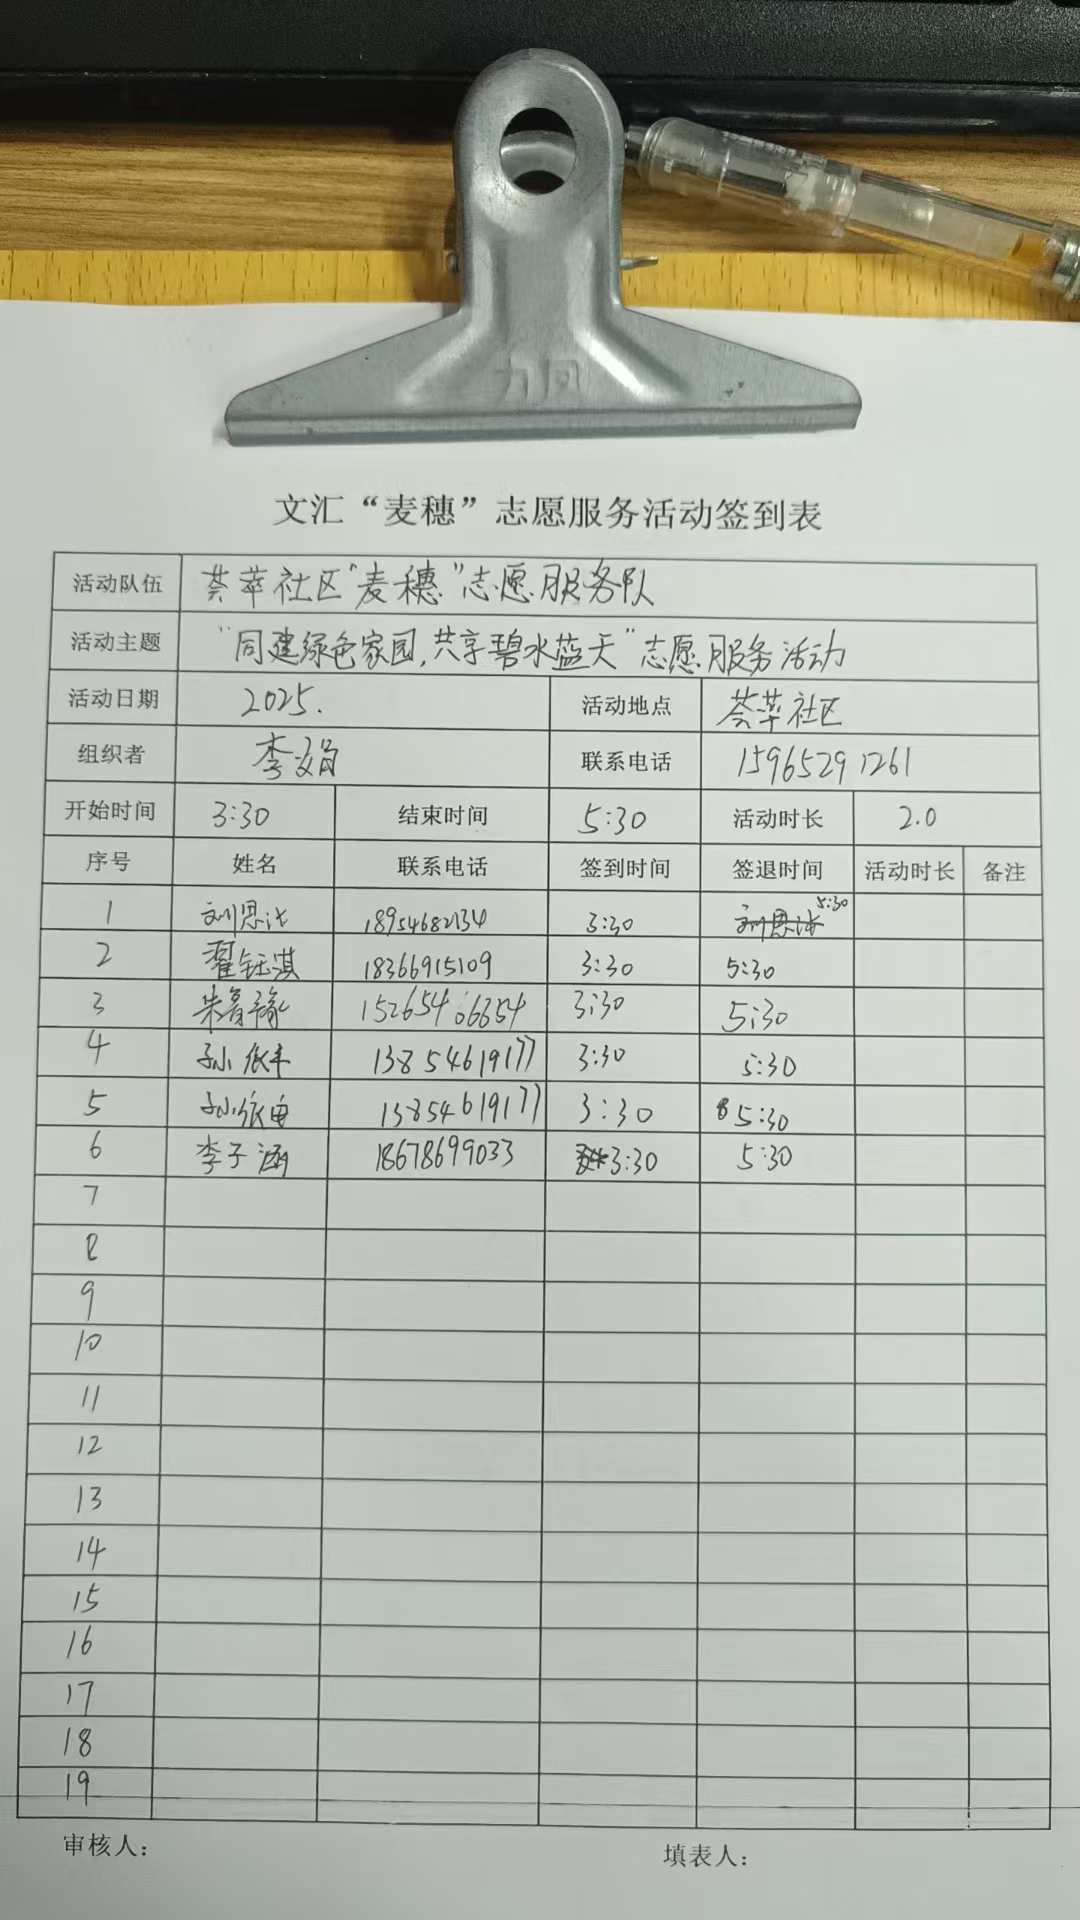 力风
文汇“麦穗”志愿服务活动签到表
活动队伍 荟萃社区“麦穗”志愿服务队
活动主题 “同建绿色家园,共享碧水蓝天”志愿服务活动
活动日期 2025. 活动地点 荟萃社区
组织者 李娟 联系电话 15965291261
开始时间 3:30 结束时间 5:30 活动时长 2.0
序号 姓名 联系电话 签到时间 签退时间 活动时长 备注
1 刘恩 18954682134 3:30 5:30
2 翟钰淇 18366915109 3:30 5:30
3 朱 3:30 5:30
4 孙 13854619177 3:30 5:30
5 孙 13854619177 3:30 5:30
6 李子涵 18678699033 3:30 5:30
7
8
9
10
11
12
13
14
15
16
17
18
19
审核人: 填表人: